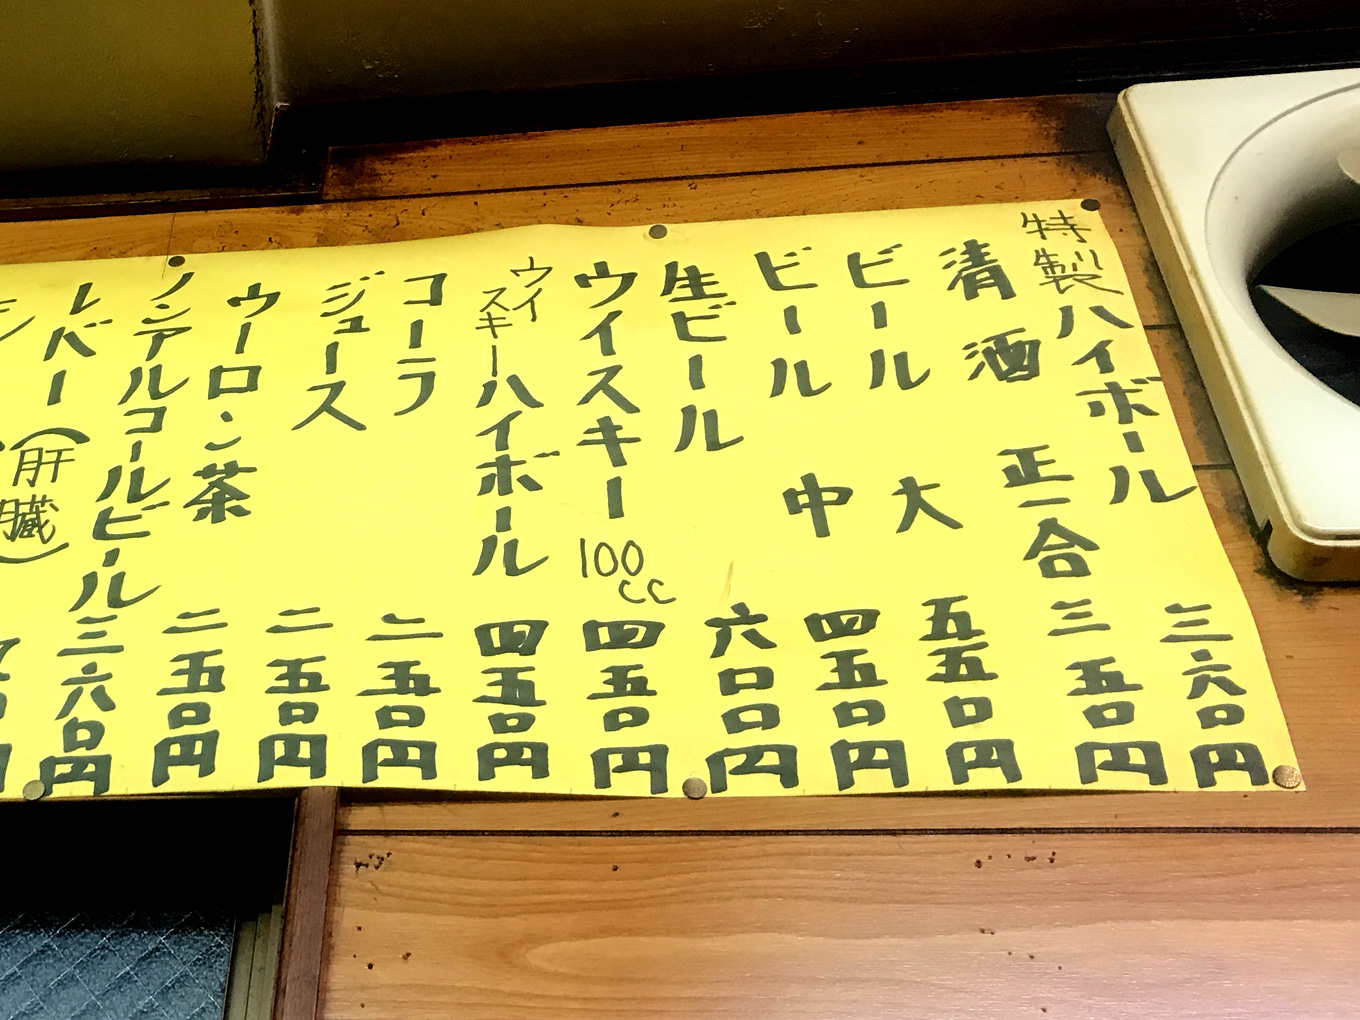 特製ハイボール 三六〇円
清酒 正一合 三五〇円
ビール 大 五五〇円
ビール 中 四五〇円
生ビール 六〇〇円
ウイスキー 100cc 四五〇円
ウイスキーハイボール 四五〇円
コーラ 二五〇円
ジュース 二五〇円
ウーロン茶 二五〇円
ノンアルコールビール 三六〇円
レバー(肝臓)